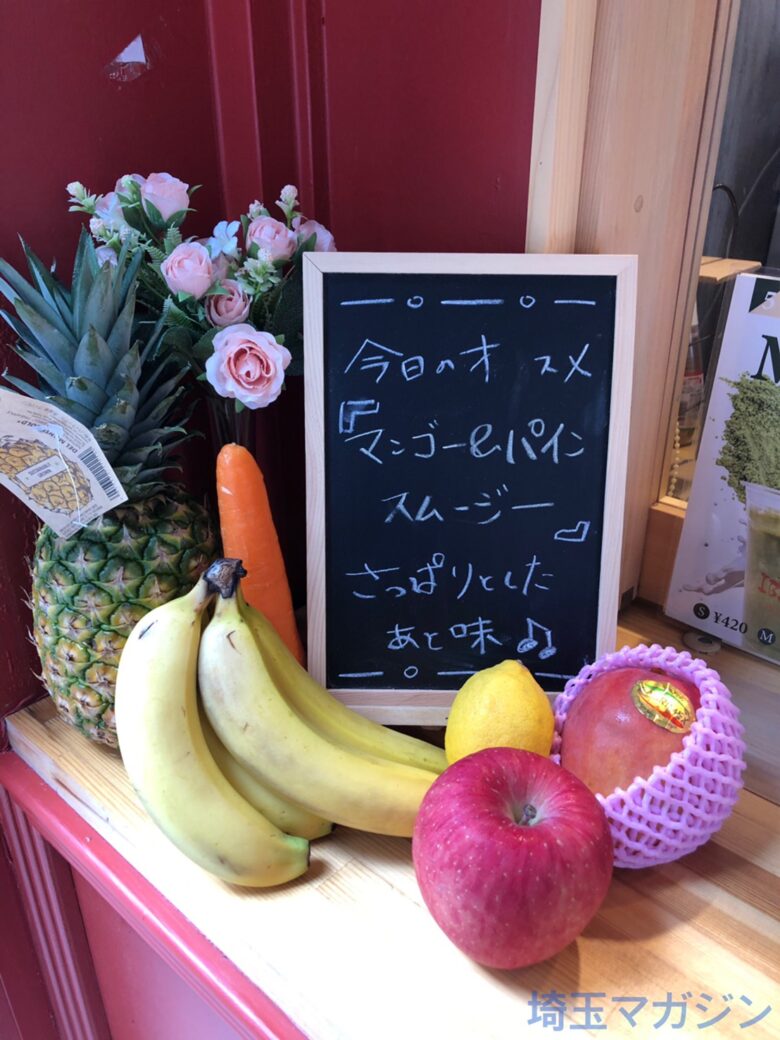 今日のオ スメ
『マンゴー&パイン
スムージー』
さっぱりとした
あと味♫
M
S ¥420 M
埼玉マガジン